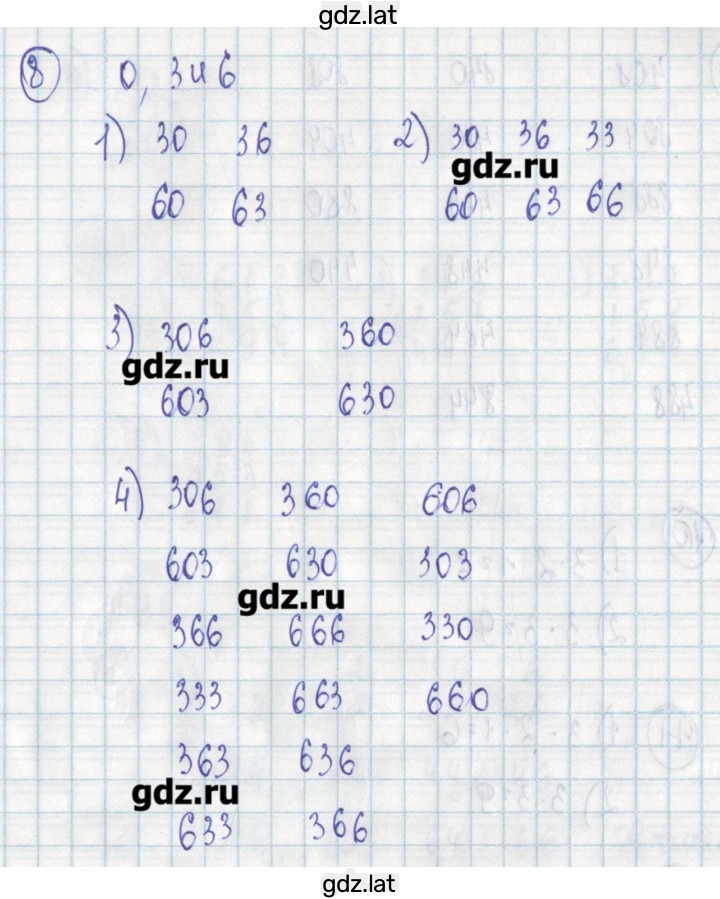 gdz.lat
8 0, 3 и 6
1) 30 36 2) 30 36 33
gdz.ru
60 63 60 63 66
3) 306 360
gdz.ru
603 630
4) 306 360 606
603 630 303
gdz.ru
366 666 330
333 663 660
363 636
gdz.ru
633 366
gdz.lat